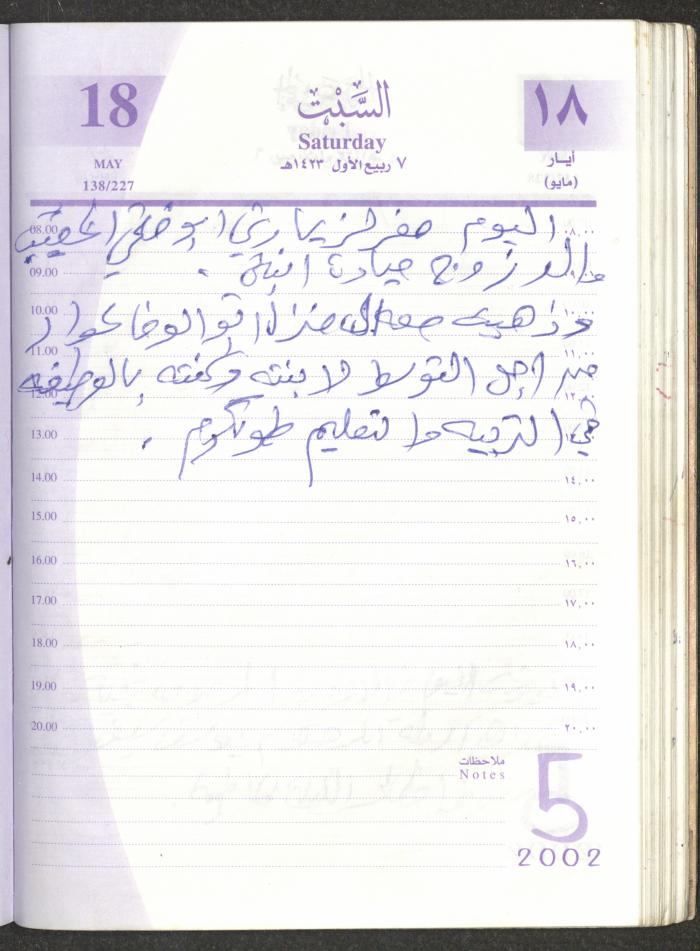 18
السَّبْت
١٨
Saturday
MAY
٧ ربيع الأول ١٤٢٣هـ
أيار
138/227
(مايو)
08.00 اليوم حضر لزيارتي ابو فتحي ٠٨,٠٠
09.00 والد زوج ميادة ابنة . ٠٩,٠٠
10.00 وذهبت معه الى منزل ابو الوفا ١٠,٠٠
11.00 من اجل التوسط لابنته وكنته بالوظيفه ١١,٠٠
12.00 ١٢,٠٠
13.00 في التربيه والتعليم طولكرم . ١٣,٠٠
14.00 ١٤,٠٠
15.00 ١٥,٠٠
16.00 ١٦,٠٠
17.00 ١٧,٠٠
18.00 ١٨,٠٠
19.00 ١٩,٠٠
20.00 ٢٠,٠٠
ملاحظات
Notes
5
2002